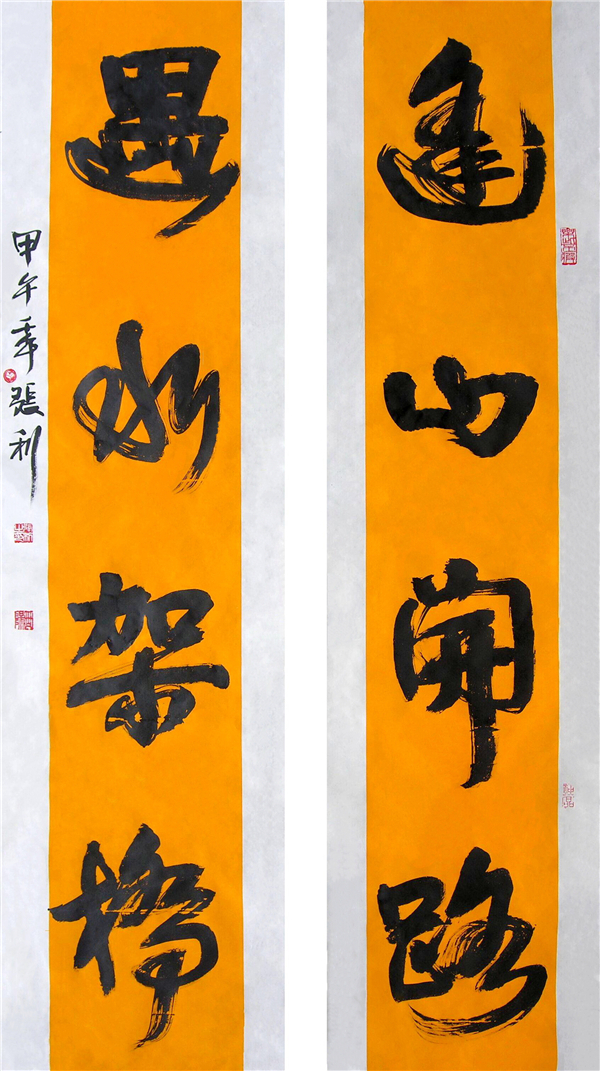 逢山開路
遇水架橋
甲午年 張利